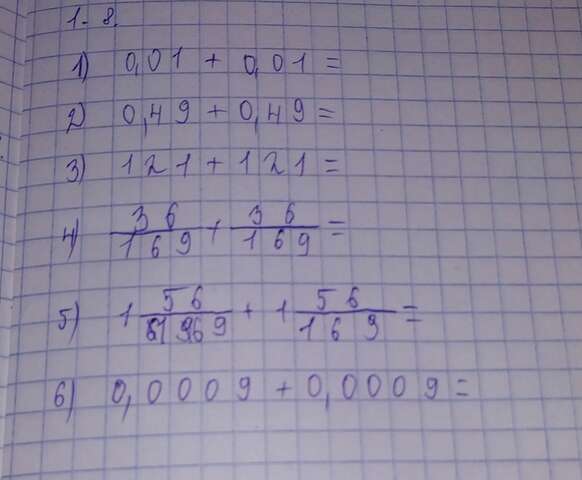 1. 8.
1) 0,01 + 0,01 =
2) 0,49 + 0,49 =
3) 121 + 121 =
4) 36/169 + 36/169 =
5) 1 56/169 + 1 56/169 =
6) 0,0009 + 0,0009 =